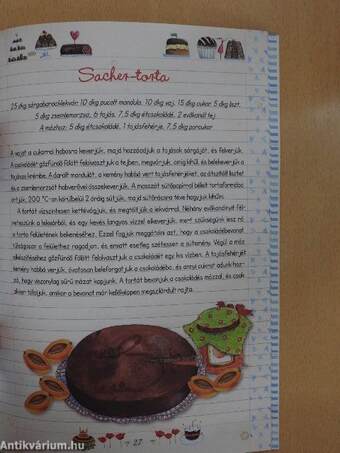 Sacher-torta
25 dkg sárgabarracklekvár, 10 dkg pucolt mandula, 10 dkg vaj, 15 dkg cukor, 5 dkg liszt,
5 dkg zsemlemorzsa, 6 tojás, 7,5 dkg étcsokoládé, 2 evőkanál tej
A mázhoz: 5 dkg étcsokoládé, 1 tojásfehérje, 7,5 dkg porcukor
A vajat a cukorral habosra keverjük, majd hozzáadjuk a tojások sárgáját, és felverjük.
A csokoládét gőzfürdő fölött felolvasztjuk a tejben, megvárjuk, amíg kihűl, és belekeverjük a
tojásos krémbe. A darált mandulát, a kemény habbá vert tojásfehérjéket, az átszitált lisztet
és a zsemlemorzsát habverővel összekeverjük. A masszát sütőpapírral bélelt tortaformába
öntjük, 200 °C-on körülbelül 2 óráig sütjük, majd sütőrácsra téve hagyjuk kihűlni.
A tortát vízszintesen kettévágjuk, és megtöltjük a lekvárral. Néhány evőkanálnyit fél-
reteszünk a lekvárból, és egy kevés langyos vízzel elkeverjük, mert szükségünk lesz rá
a torta felületének bekenéséhez. Ezzel fogjuk meggátolni azt, hogy a csokoládébevonat
túlságosan a felülethez ragadjon, és emiatt esetleg széttessen a sütemény. Végül a máz
elkészítéséhez gőzfürdő fölött felolvasztjuk a csokoládét egy kis vízben. A tojásfehérjét
kemény habbá verjük, óvatosan beleforgatjuk a csokoládéba, és annyi cukrot adunk hoz-
zá, hogy viszonylag sűrű mázat kapjunk. A tortát bevonjuk a csokoládés mázzal, és csak
akkor tálaljuk, amikor a bevonat már kellőképpen megszilárdult rajta.
27
Antikvárium.hu